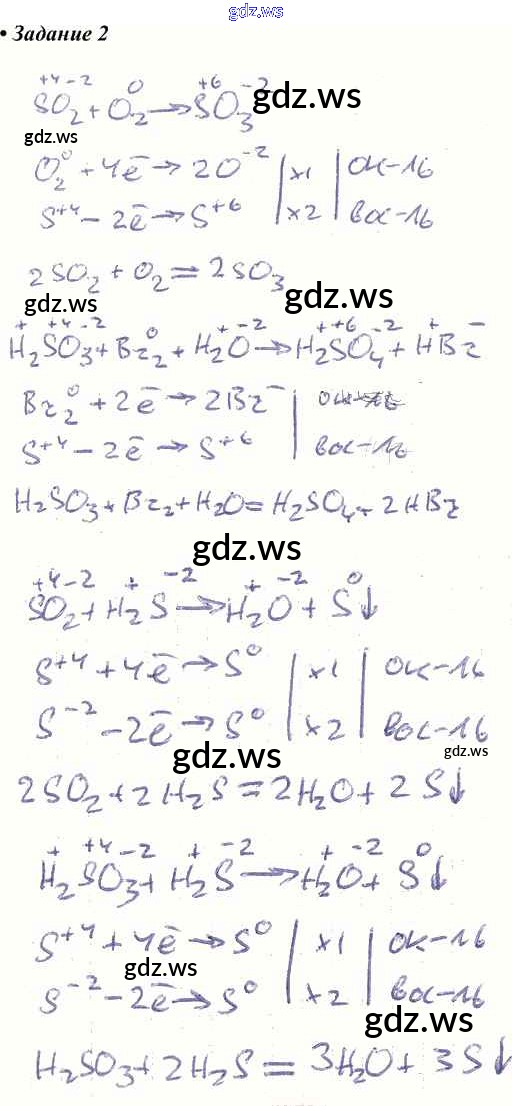 gdz.ws
• Задание 2
+4 -2 0 +6 -2
SO2 + O2 → SO3 gdz.ws
gdz.ws
O2 0 + 4ē → 2O-2 | x1 | ок-ль
S+4 - 2ē → S+6 | x2 | вос-ль
2SO2 + O2 = 2SO3
gdz.ws gdz.ws
+ +4 -2 0 + -2 + +6 -2 + -
H2SO3 + Br2 + H2O → H2SO4 + HBr
Br2 0 + 2ē → 2Br- | ок-ль
S+4 - 2ē → S+6 | вос-ль
H2SO3 + Br2 + H2O = H2SO4 + 2HBr
gdz.ws
+4 -2 + -2 + -2 0
SO2 + H2S → H2O + S↓
S+4 + 4ē → S0 | x1 | ок-ль
S-2 - 2ē → S0 | x2 | вос-ль
gdz.ws gdz.ws
2SO2 + 2H2S = 2H2O + 2S↓
+ +4 -2 + -2 + -2 0
H2SO3 + H2S → H2O + S↓
S+4 + 4ē → S0 | x1 | ок-ль
gdz.ws
S-2 - 2ē → S0 | x2 | вос-ль
gdz.ws
H2SO3 + 2H2S = 3H2O + 3S↓